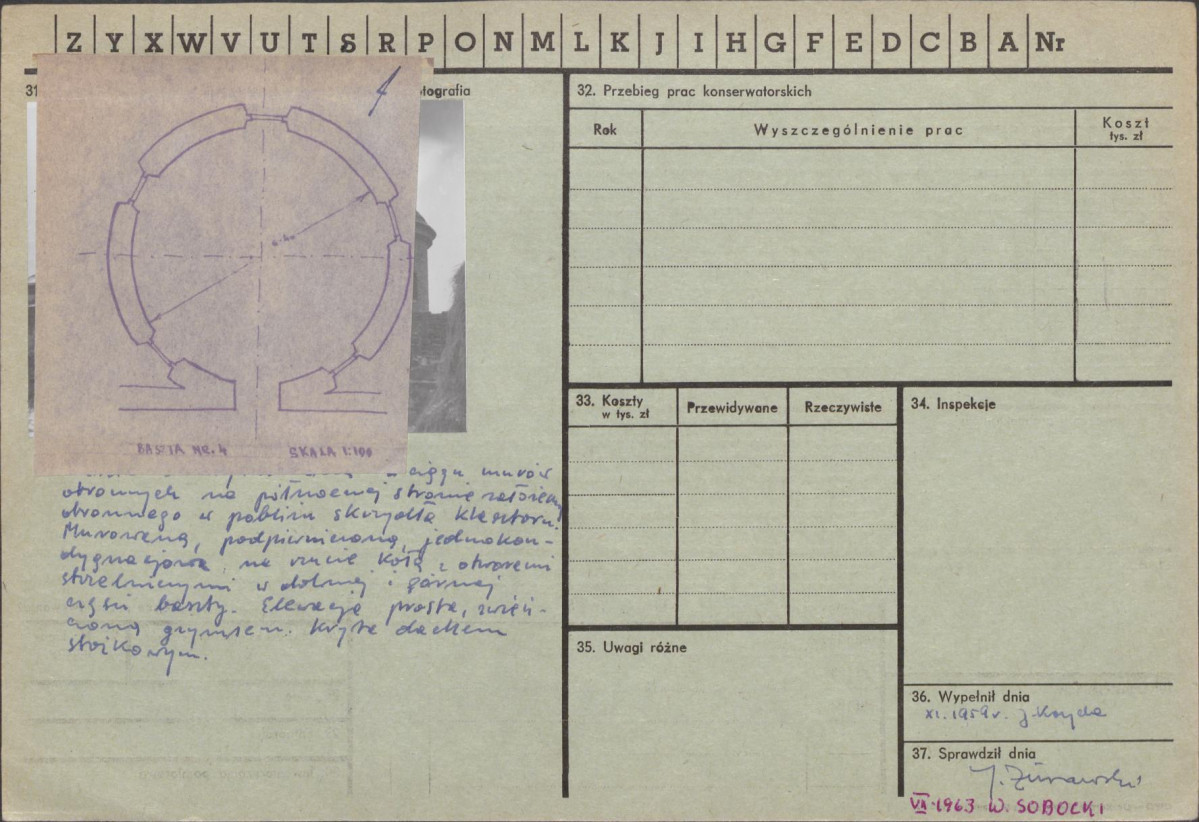 Z Y X W V U T S R P O N M L K J I H G F E D C B A Nr
31
tografia
1
BASTIA NR. 4 SKALA 1:100
ciągu murów
obronnych na północnej stronie założenia
obronnego w pobliżu skrzydła klasztoru.
Murowana, podpiwniczona, jednokon-
dygnacjowa, na rzucie koła z otworami
strzelniczymi w dolnej i górnej
części baszty. Elewacja prosta, zwień-
czona gzymsem. Kryta dachem
stożkowym.
32. Przebieg prac konserwatorskich
Rok Wyszczególnienie prac Koszt
tys. zł
33. Koszty
w tys. zł
Przewidywane Rzeczywiste
34. Inspekcje
35. Uwagi różne
36. Wypełnił dnia
XI. 1959 r. J.
37. Sprawdził dnia
J. Żurawski
VII 1963 W. SOBOCKI